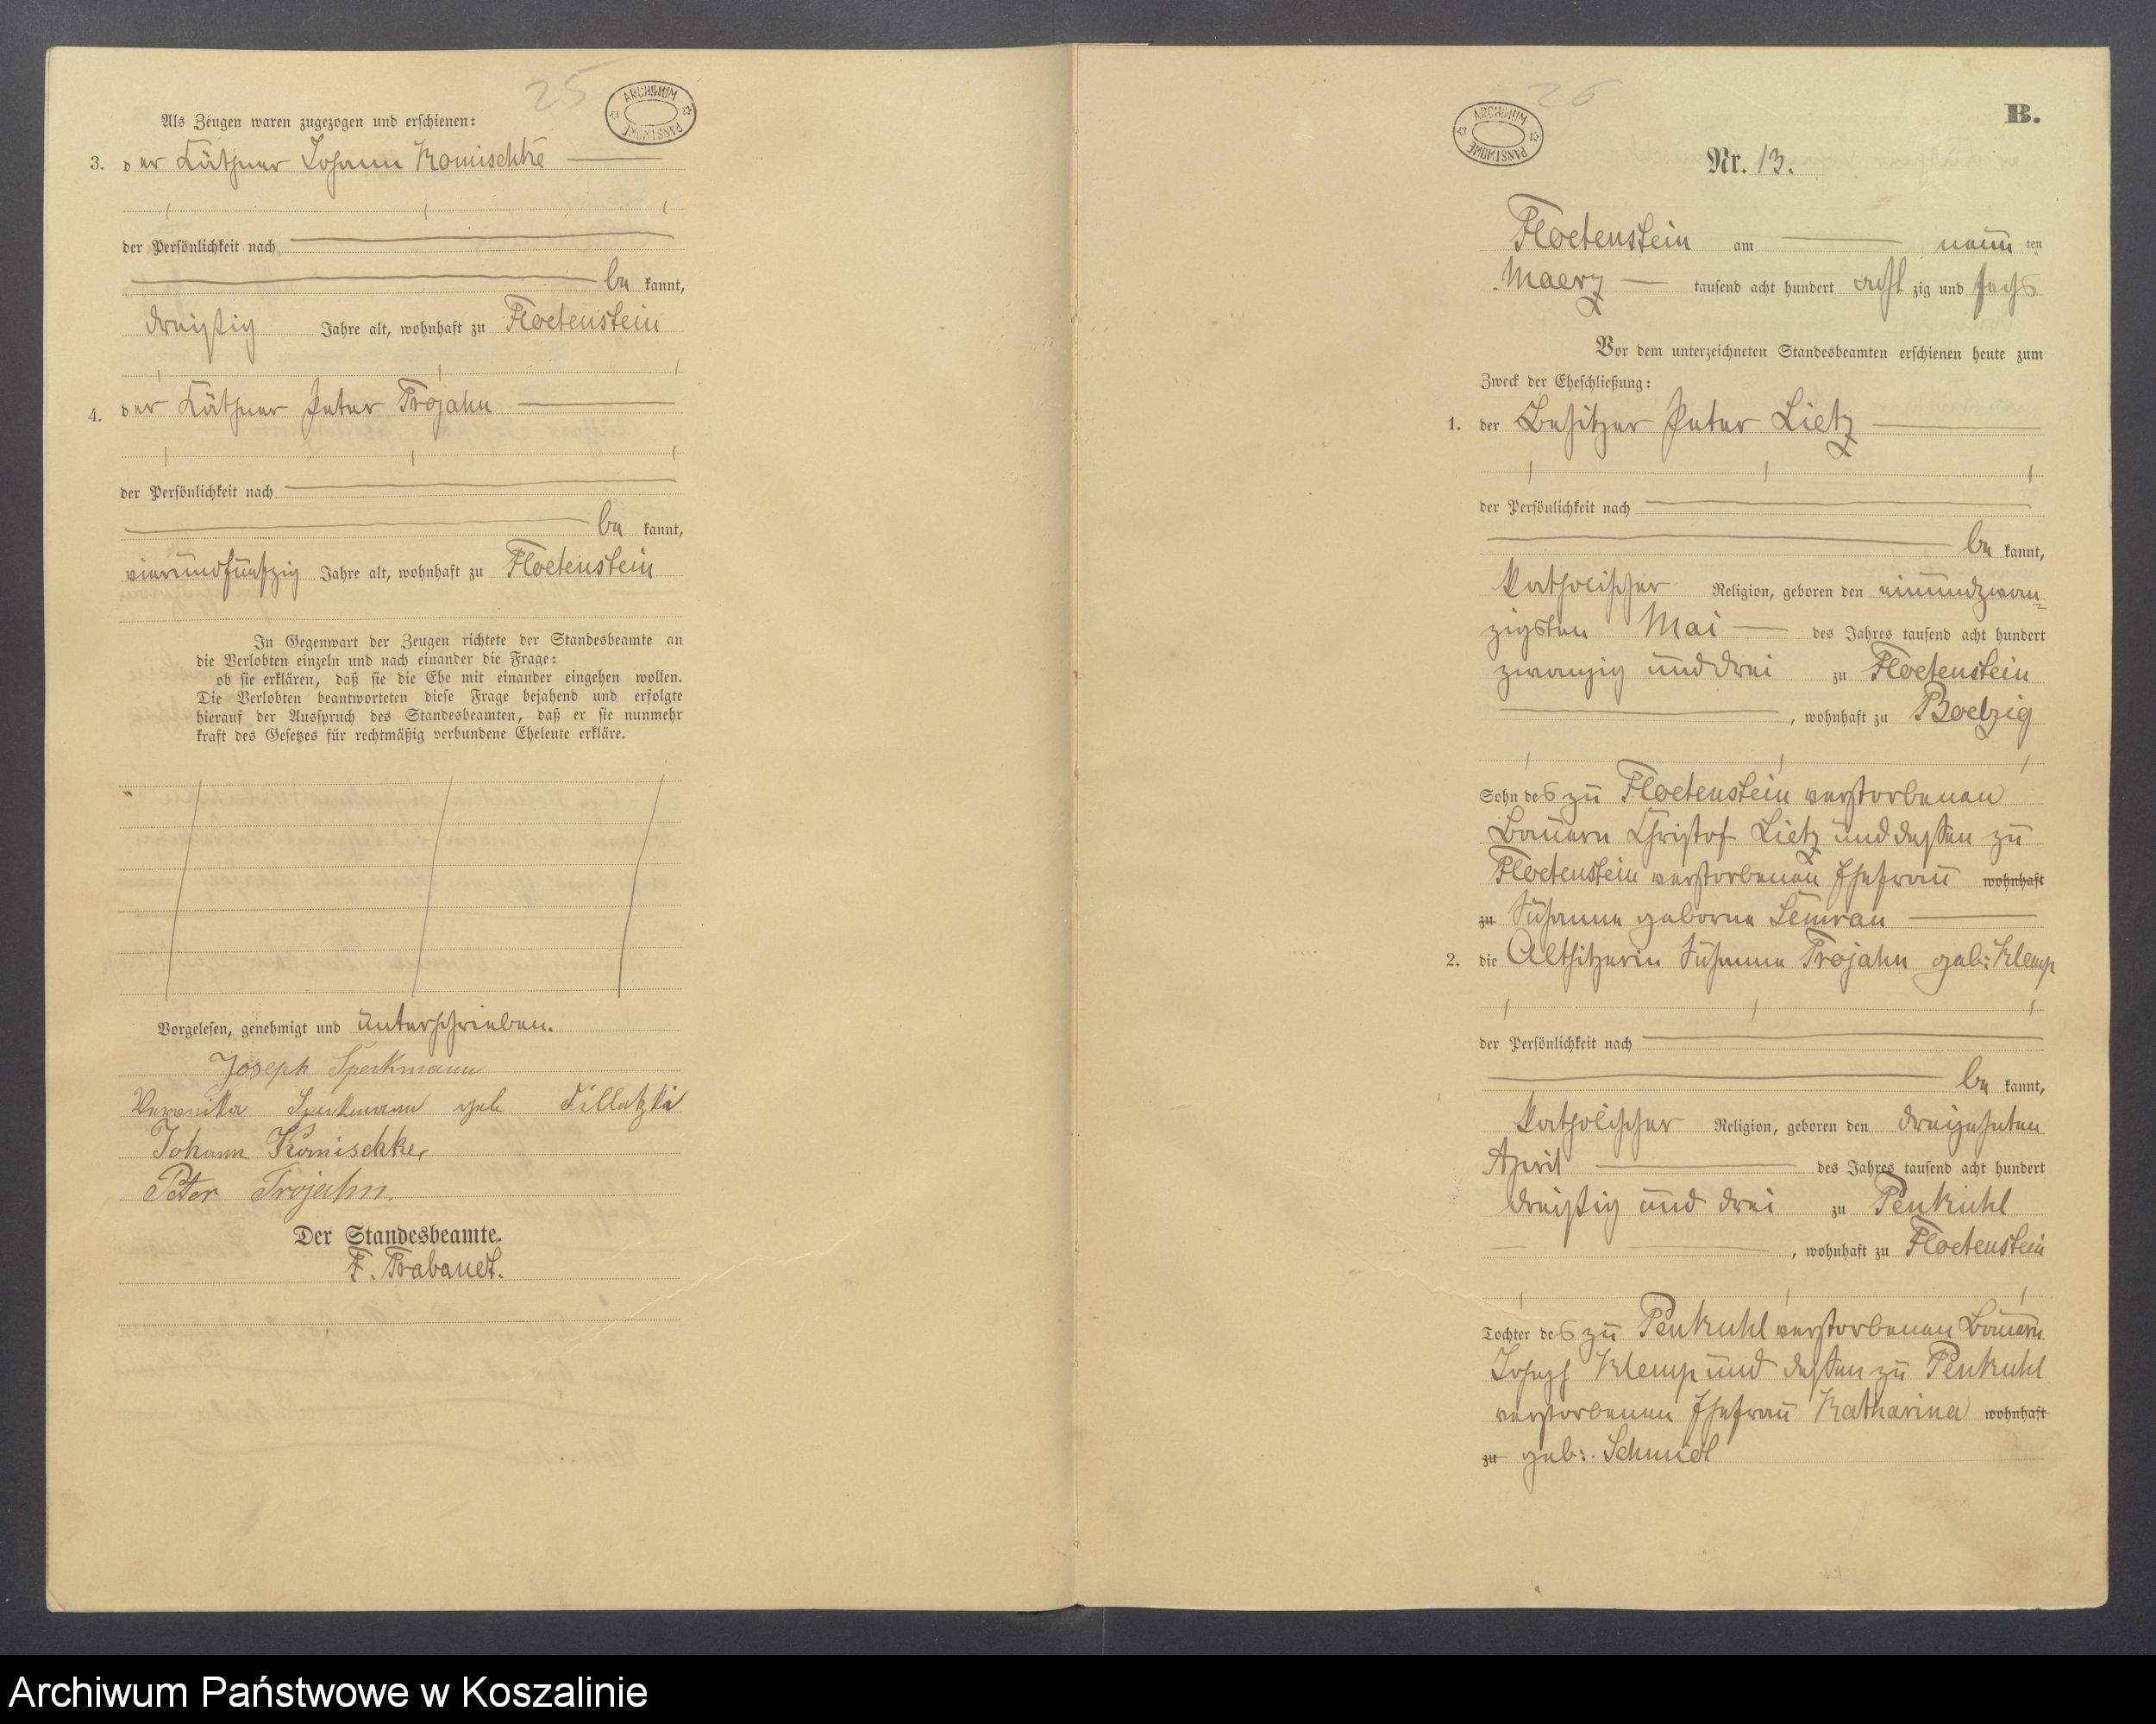 25
ARCHIWUM PAŃSTWOWE
Als Zeugen waren zugezogen und erschienen:
3. der Käthner Johann Komischke
der Persönlichkeit nach
be kannt,
dreißig Jahre alt, wohnhaft zu Floetenstein
4. der Käthner Peter Trojahn
der Persönlichkeit nach
be kannt,
vierundfünfzig Jahre alt, wohnhaft zu Floetenstein
In Gegenwart der Zeugen richtete der Standesbeamte an
die Verlobten einzeln und nach einander die Frage:
ob sie erklären, daß sie die Ehe mit einander eingehen wollen.
Die Verlobten beantworteten diese Frage bejahend und erfolgte
hierauf der Ausspruch des Standesbeamten, daß er sie nunmehr
kraft des Gesetzes für rechtmäßig verbundene Eheleute erkläre.
Vorgelesen, genehmigt und unterschrieben.
Joseph Sperkmann
Veronika Sperkmann geb
Johann Komischke
Peter Trojahn.
Der Standesbeamte.
F. Trabandt.
26
ARCHIWUM PAŃSTWOWE
B.
Nr. 13.
Floetenstein am neun ten
Maerz tausend acht hundert acht zig und sechs
Vor dem unterzeichneten Standesbeamten erschienen heute zum
Zweck der Eheschließung:
1. der Besitzer Peter Lietz
der Persönlichkeit nach
be kannt,
katholischer Religion, geboren den einundzwan=
zigsten Mai des Jahres tausend acht hundert
zwanzig und drei zu Floetenstein
, wohnhaft zu Boelzig
Sohn des zu Floetenstein verstorbenen
Bauern Christof Lietz und dessen zu
Floetenstein verstorbenen Ehefrau wohnhaft
zu Susanna geborne Semrau
2. die Altsitzerin Susanna Trojahn geb: Klemp
der Persönlichkeit nach
be kannt,
katholischer Religion, geboren den dreizehnten
April des Jahres tausend acht hundert
dreißig und drei zu Penkuhl
, wohnhaft zu Floetenstein
Tochter des zu Penkuhl verstorbenen Bauern
Joseph Klemp und dessen zu Penkuhl
verstorbenen Ehefrau Katharina wohnhaft
zu geb: Schmidt
Archiwum Państwowe w Koszalinie